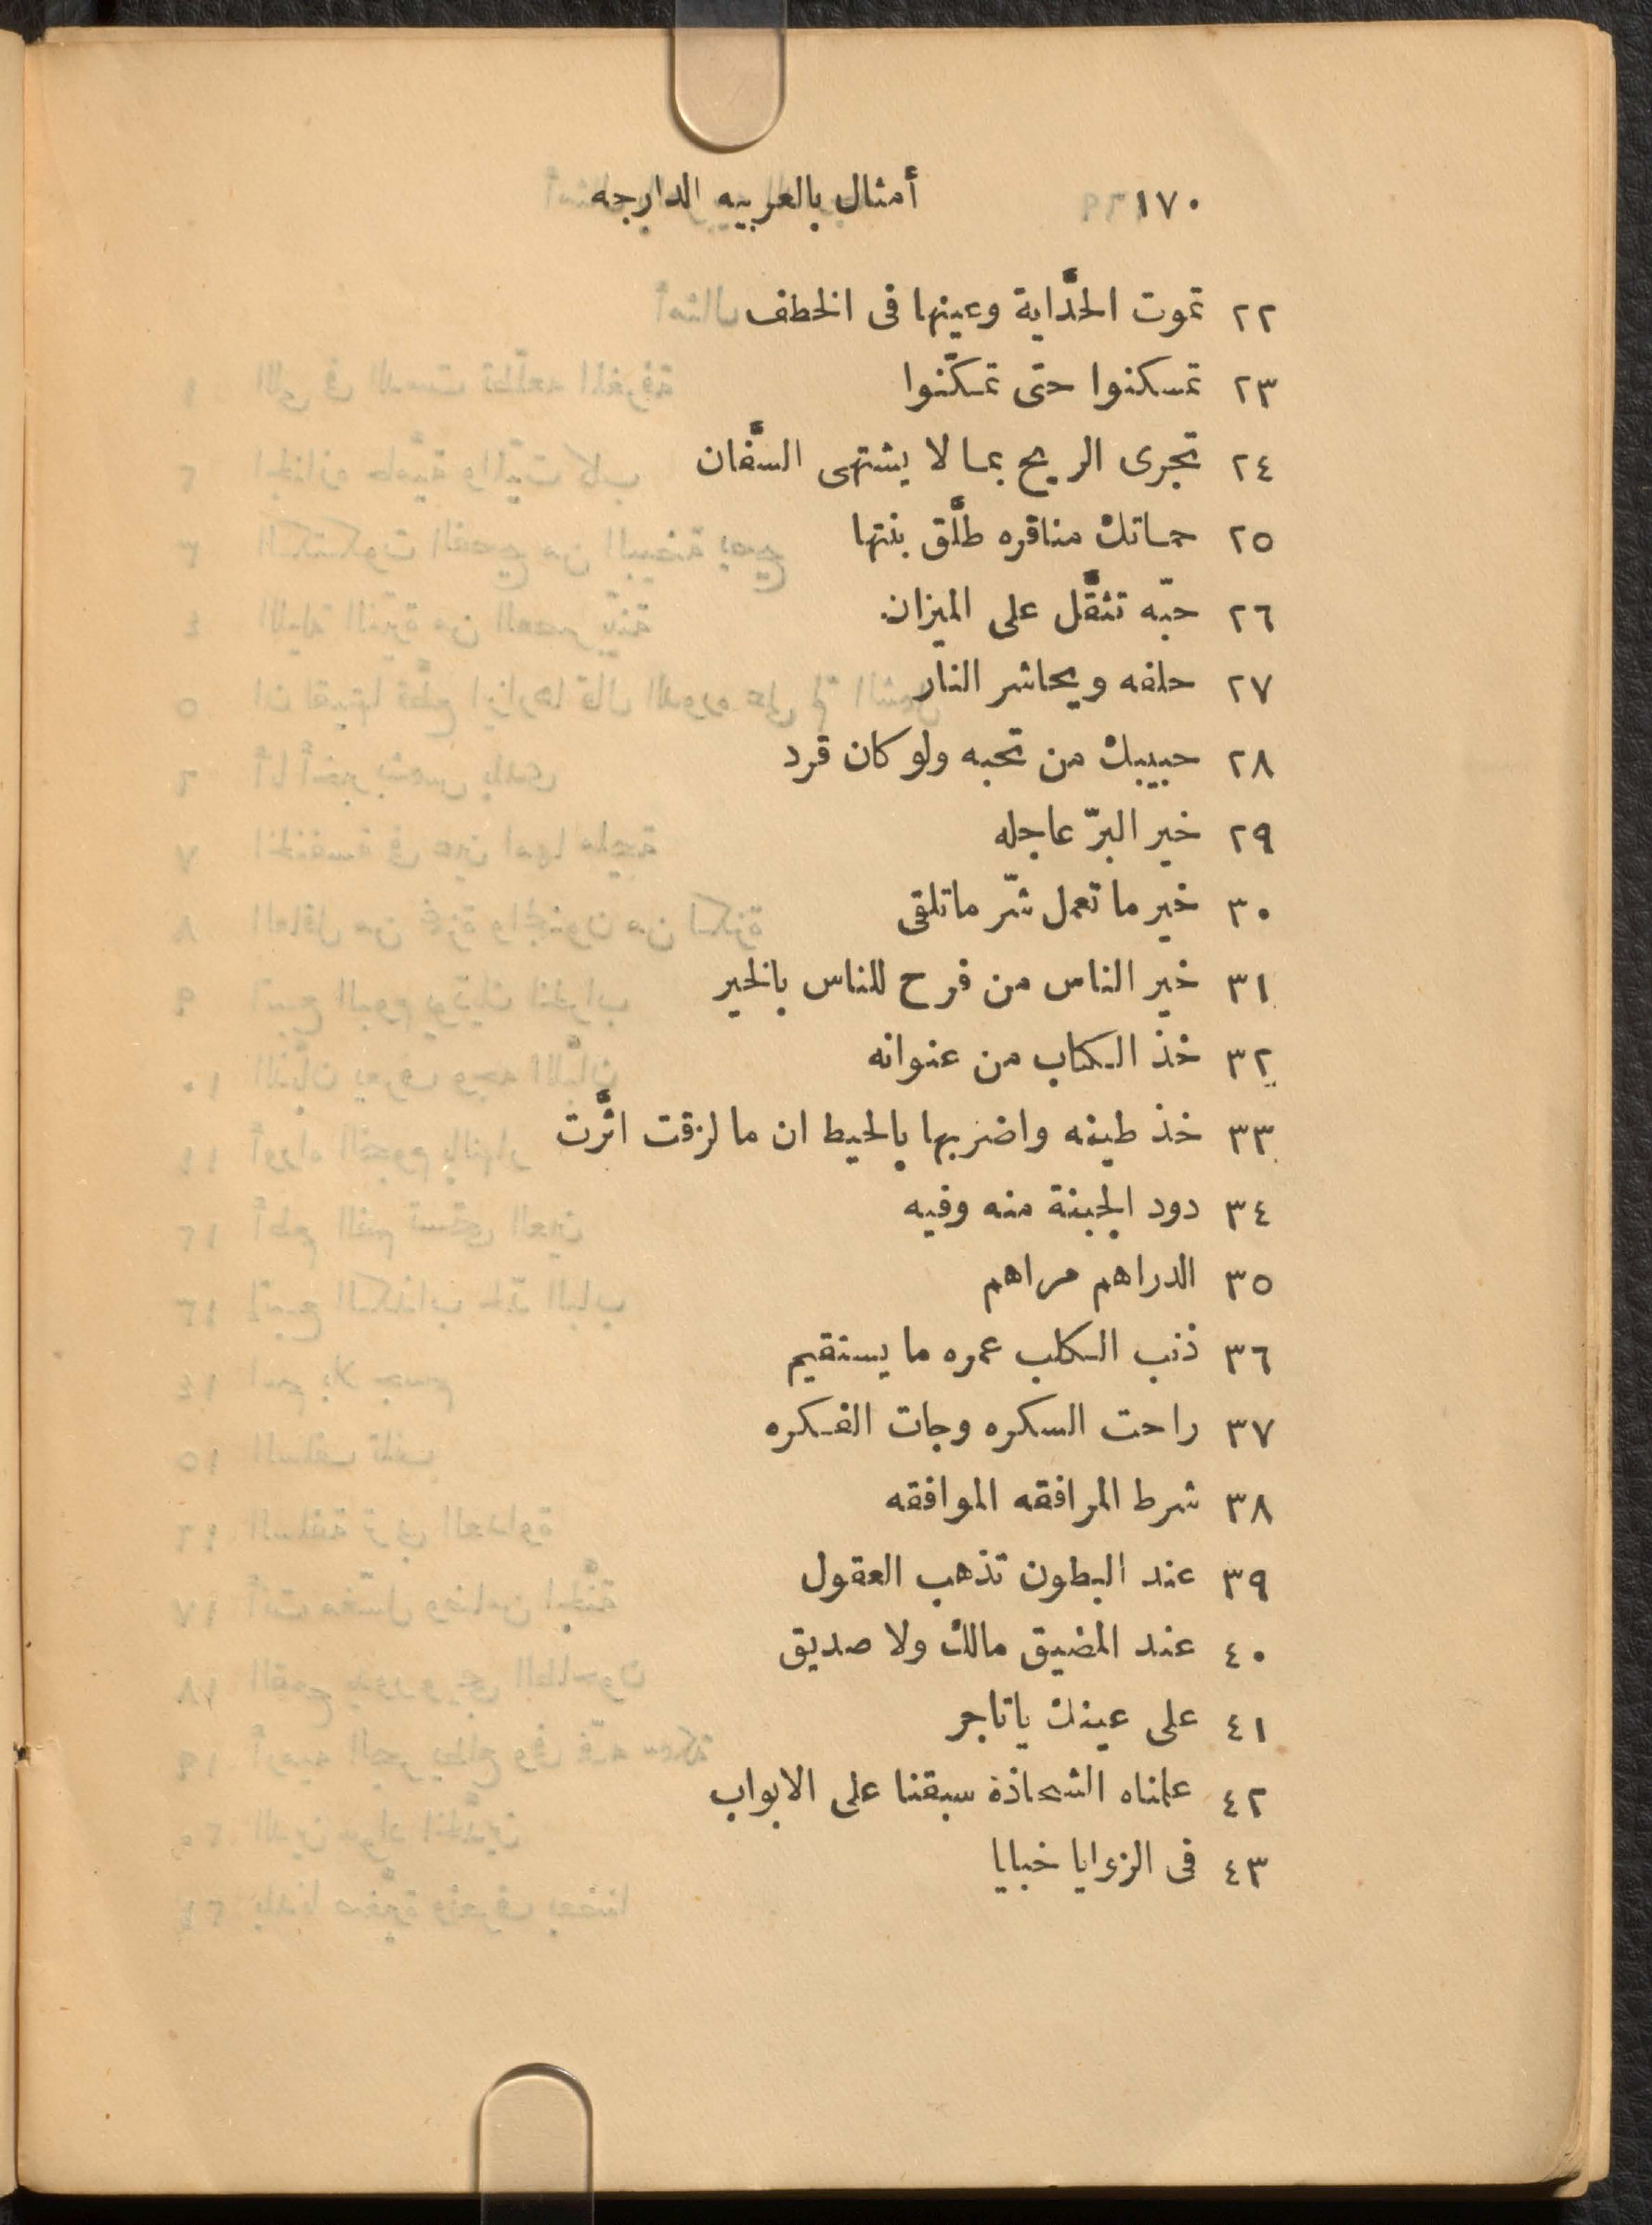 ١٧٠ أمثال بالعربيه الدارجه
٢٢ تموت الحدَّاية وعينها فى الخطف
٢٣ تمسكنوا حتى تمكّنوا
٢٤ تجرى الريح بما لا يشتهى السَّفان
٢٥ حماتك مناقره طلَّق بنتها
٢٦ حبّه تثقَّل على الميزان
٢٧ حلفه ويحاشر النار
٢٨ حبيبك من تحبه ولو كان قرد
٢٩ خير البرّ عاجله
٣٠ خير ما تعمل شرّ ماتلقى
٣١ خير الناس من فرح للناس بالخير
٣٢ خذ الكتاب من عنوانه
٣٣ خذ طينه واضربها بالحيط ان ما لزقت اثَّرت
٣٤ دود الجبنة منه وفيه
٣٥ الدراهم مراهم
٣٦ ذنب الكلب عمره ما يستقيم
٣٧ راحت السكره وجات الفكره
٣٨ شرط المرافقه الموافقه
٣٩ عند البطون تذهب العقول
٤٠ عند المضيق مالك ولا صديق
٤١ على عينك ياتاجر
٤٢ علمناه الشحاذة سبقنا على الابواب
٤٣ فى الزوايا خبايا